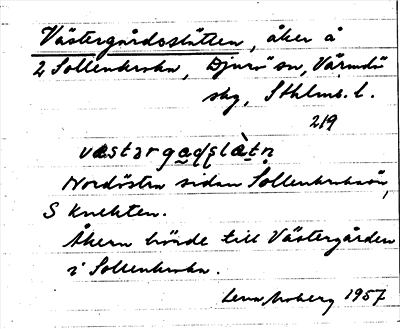 Västergårdsslätten, åker å
2 Sollenkroka, Djurö sn, Värmdö
skg, Sthlms. l.
219
Nordöstra sidan Sollenkrokaön,
S knekten.
Åkern hörde till Västergården
i Sollenkroka.
Lena Moberg 1957